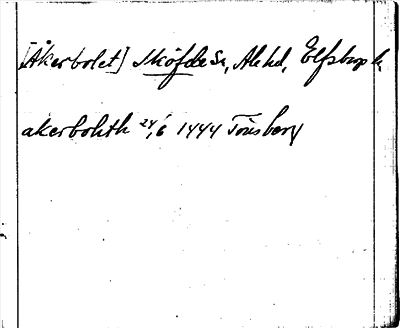 [Åkerbolet] Sköfde sn, Ale hd, Elfsborgs l.
akerbohth 24/6 1444 Tönsberg